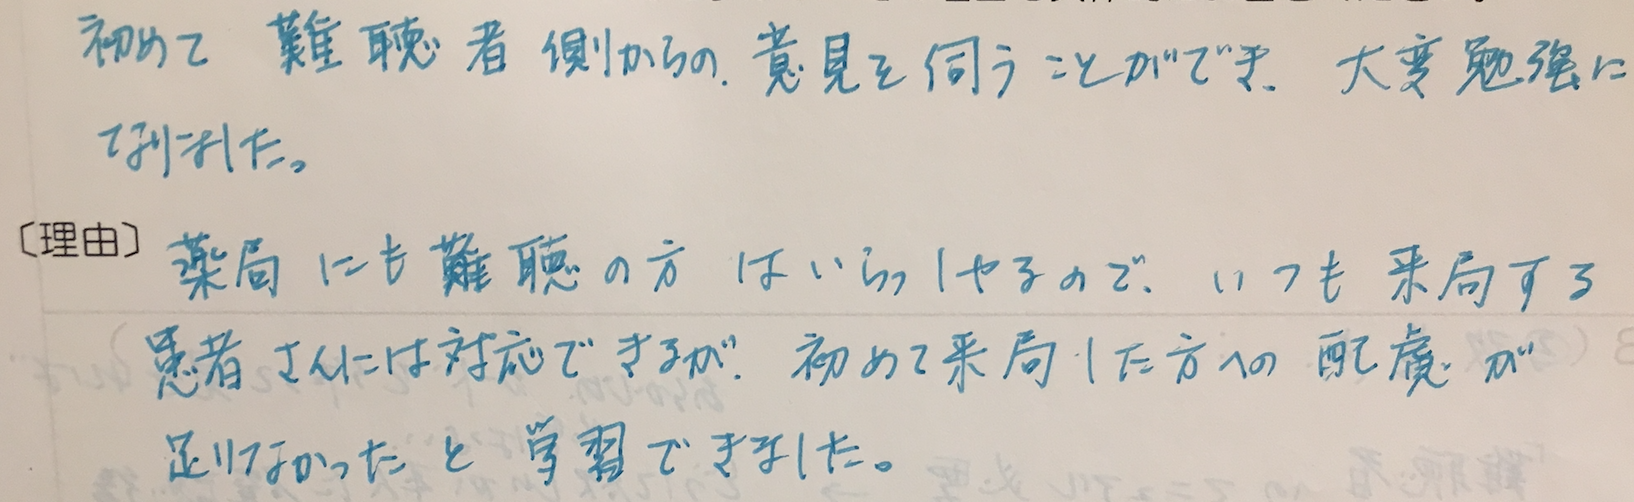 初めて難聴者側からの、意見を伺うことができ、大変勉強に
なりました。
〔理由〕薬局にも難聴の方はいらっしゃるので、いつも来局する
患者さんには対応できるが、初めて来局した方への配慮が
足りなかったと学習できました。